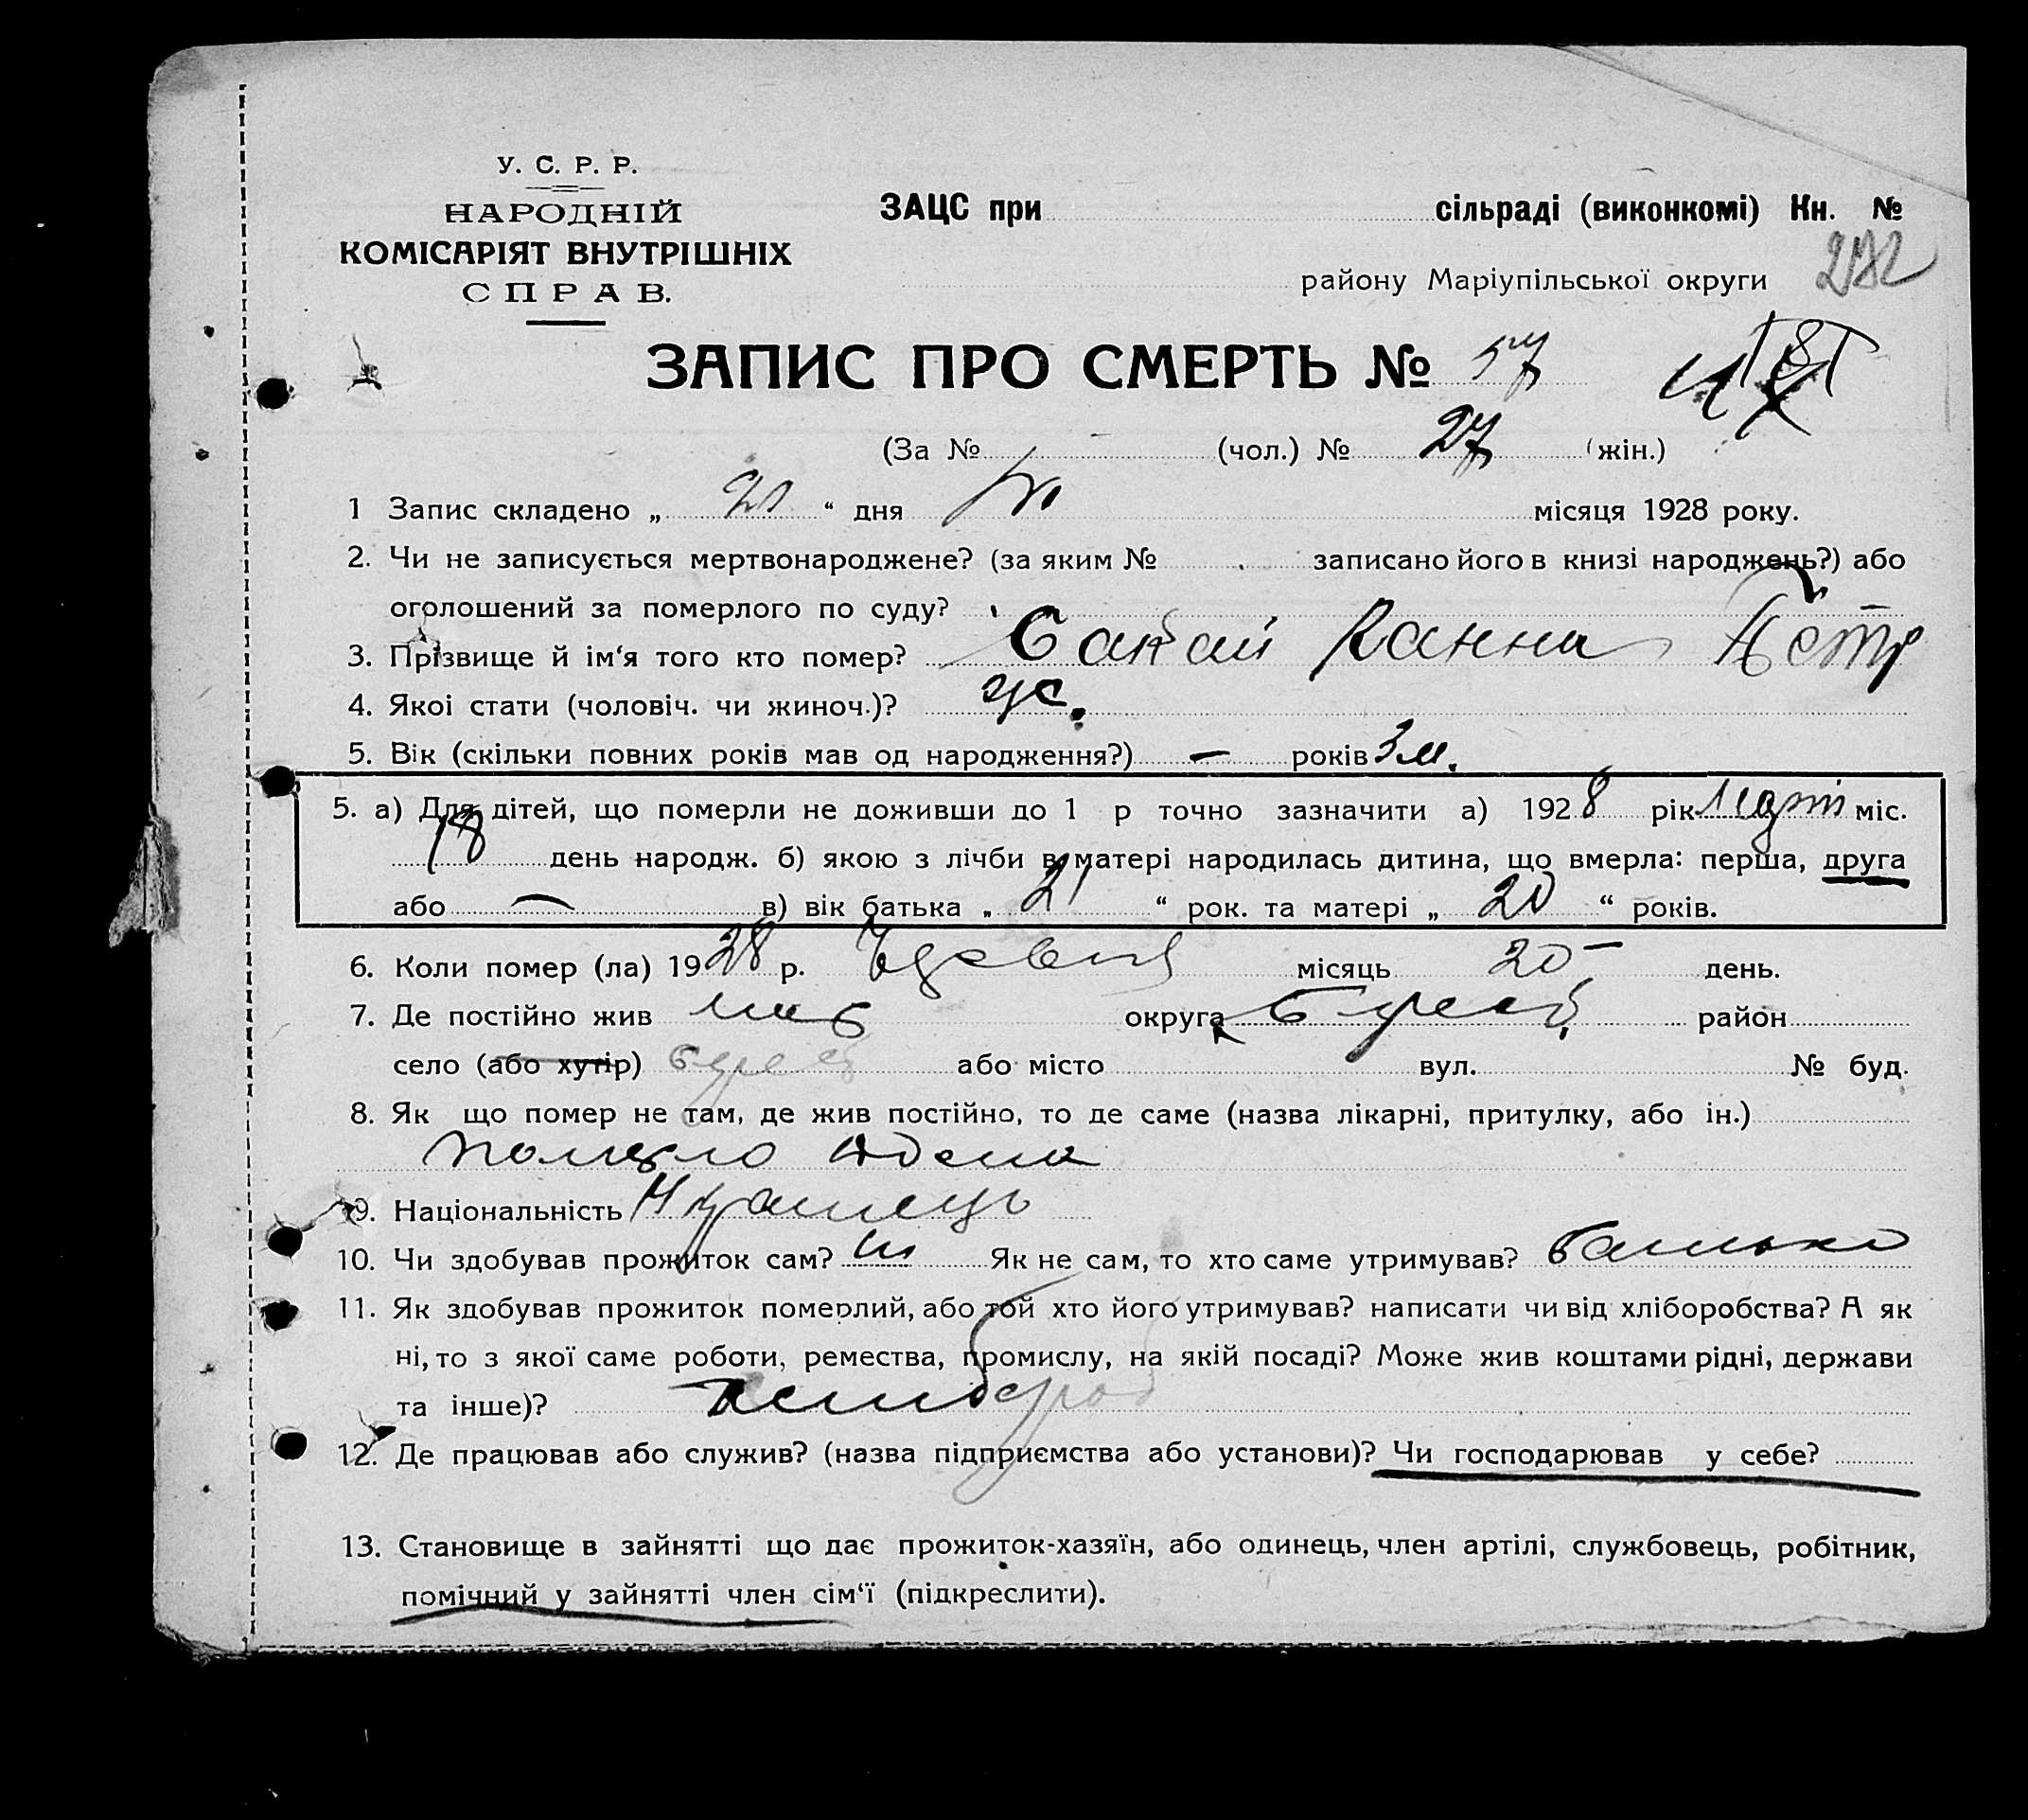 У. С. Р. Р.
НАРОДНІЙ
КОМІСАРІЯТ ВНУТРІШНІХ
СПРАВ.
ЗАЦС при сільраді (виконкомі) Кн. №
району Маріупільської округи
ЗАПИС ПРО СМЕРТЬ № 57
(За № (чол.) № 27 (жін.)
1 Запис складено „ “ дня місяця 1928 року.
2. Чи не записується мертвонароджене? (за яким № записано його в книзі народжень?) або
оголошений за померлого по суду?
3. Прізвище й ім‘я того кто помер? Ганна Петр
4. Якоі стати (чоловіч. чи жиноч.)? ж.
5. Вік (скільки повних років мав од народження?) — років 3 м.
5. а) Для дітей, що померли не доживши до 1 р точно зазначити а) 1928 рік март міс.
18 день народж. б) якою з лічби в матері народилась дитина, що вмерла: перша, друга
або — в) вік батька „ 21 “ рок. та матері „ 20 “ років.
6. Коли помер (ла) 1928 р. місяць 20 день.
7. Де постійно жив округа район
село (або хутір) або місто вул. № буд.
8. Як що помер не там, де жив постійно, то де саме (назва лікарні, притулку, або ін.)
померло дома
9. Національність Українець
10. Чи здобував прожиток сам? ні Як не сам, то хто саме утримував? батько
11. Як здобував прожиток померлий, або той хто його утримував? написати чи від хліборобства? А як
ні, то з якої саме роботи, ремества, промислу, на якій посаді? Може жив коштами рідні, держави
та інше)? хлибороб
12. Де працював або служив? (назва підприємства або установи)? Чи господарював у себе?
13. Становище в зайнятті що дає прожиток-хазяїн, або одинець, член артілі, службовець, робітник,
помічний у зайнятті член сім‘ї (підкреслити).